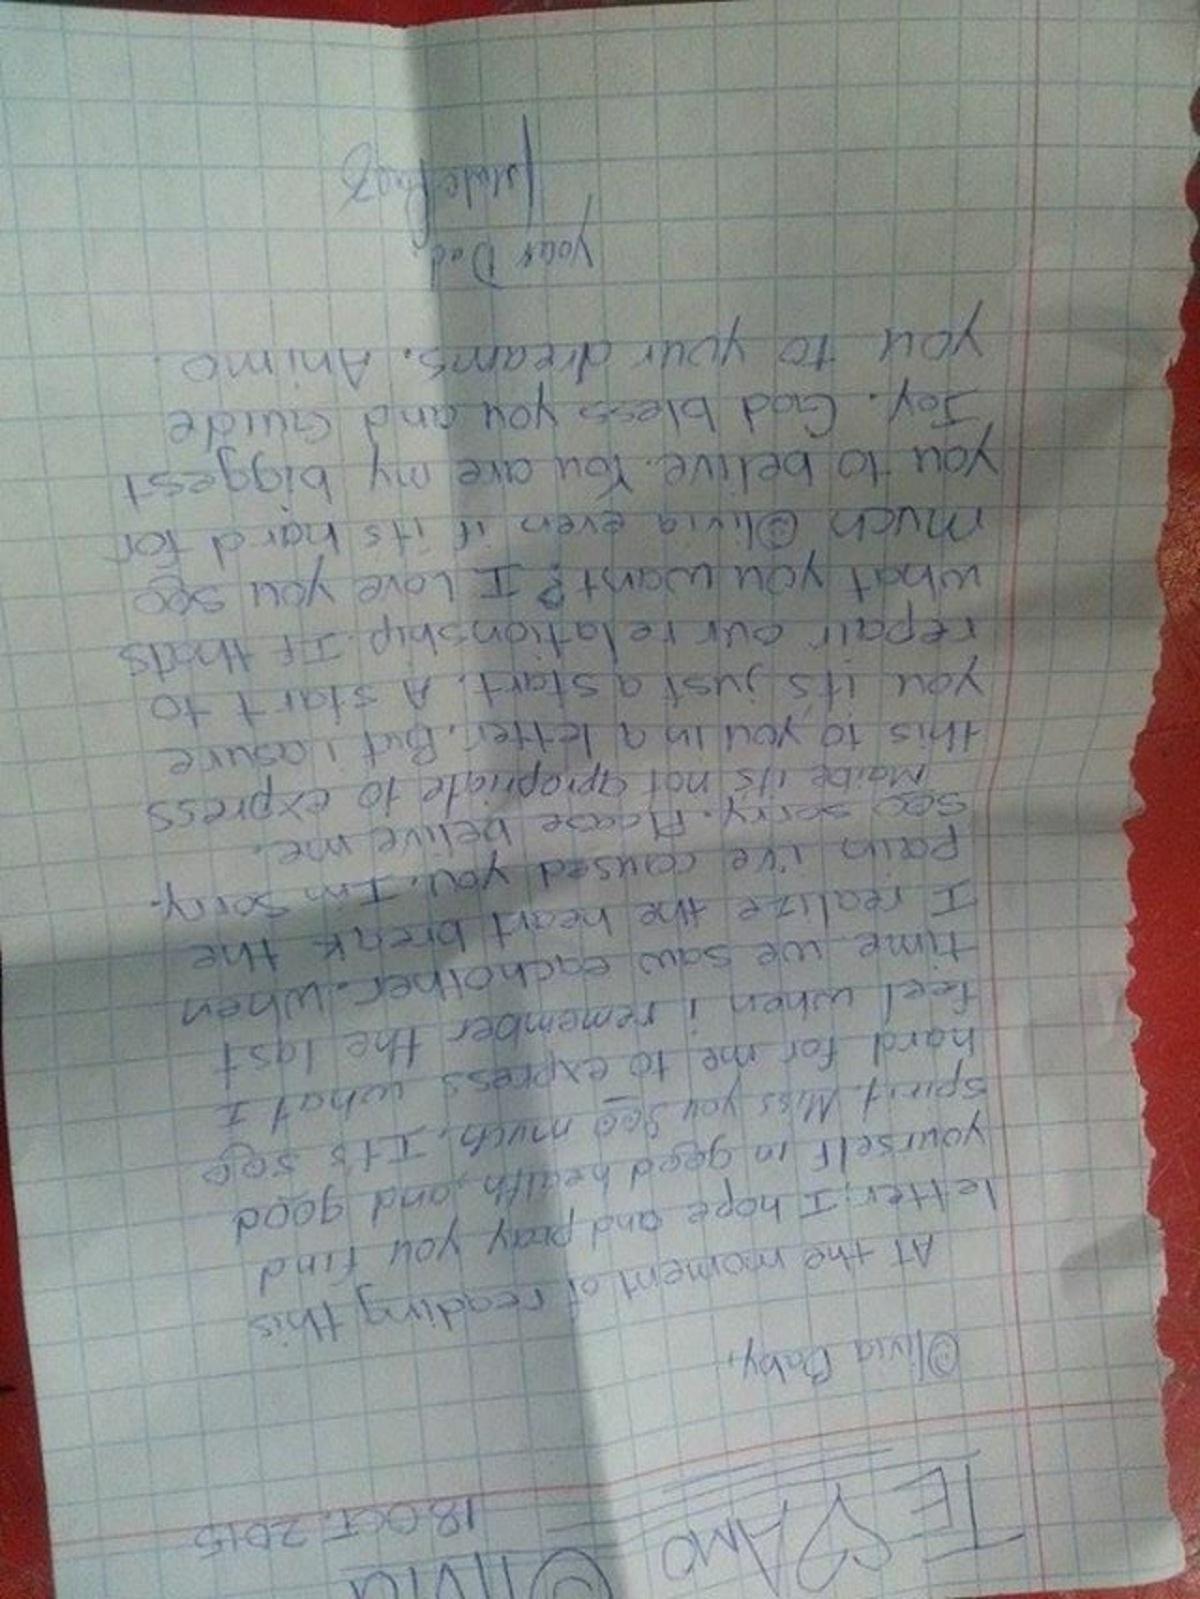 TE AMO Olivia
18. OCT. 2015
Olivia Baby,
At the moment of reading this
letter, I hope and pray you find
yourself in good health, and good
spirit. Miss you soo much. It's soo
hard for me to express what I
feel when i remember the last
time we saw eachother. When
I realize the heart break the
pain i've caused you. I'm sorry.
Soo sorry. Please belive me.
Maibe it's not apropriate to express
this to you in a letter. But i asure
you it's just a start. A start to
repair our relationship. If thats
what you want? I Love you soo
much Olivia even if its hard for
you to belive. You are my biggest
Joy. God bless you and Guide
you to your dreams. Animo.
your Dad